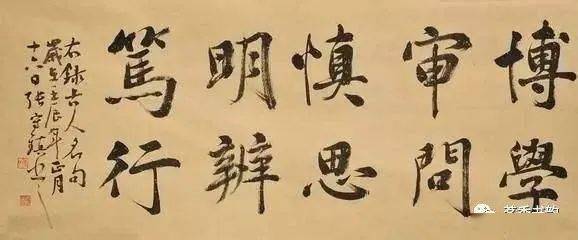 博學
审問
慎思
明辨
篤行
右録古人名句
歲在壬辰年正月
十六日張守